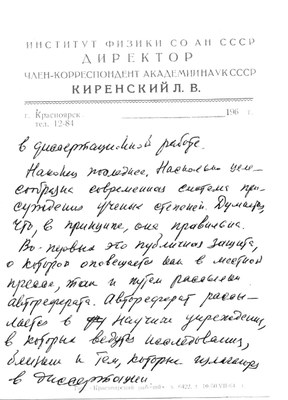 ИНСТИТУТ ФИЗИКИ СО АН СССР
ДИРЕКТОР
ЧЛЕН-КОРРЕСПОНДЕНТ АКАДЕМИИ НАУК СССР
КИРЕНСКИЙ Л. В.
г. Красноярск 196 г.
тел. 12-84
в диссертационной работе.
Наконец последнее. Насколько целе-
сообразна современная система при-
суждения ученых степеней. Думается,
что, в принципе, она правильна.
Во-первых это публичная защита,
о которой оповещается как в местной
прессе, так и путем рассылки
автореферата. Автореферат рассы-
лается в научные учреждения,
в которых ведутся исследования,
близкие к тем, которые излагаются
в диссертации.